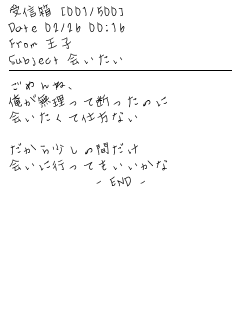 受信箱 [001/500]
Date 02/26 00:16
From 王子
Subject 会いたい
ごめんね、
俺が無理って断ったのに
会いたくて仕方ない
だから少しの間だけ
会いに行ってもいいかな
- END -